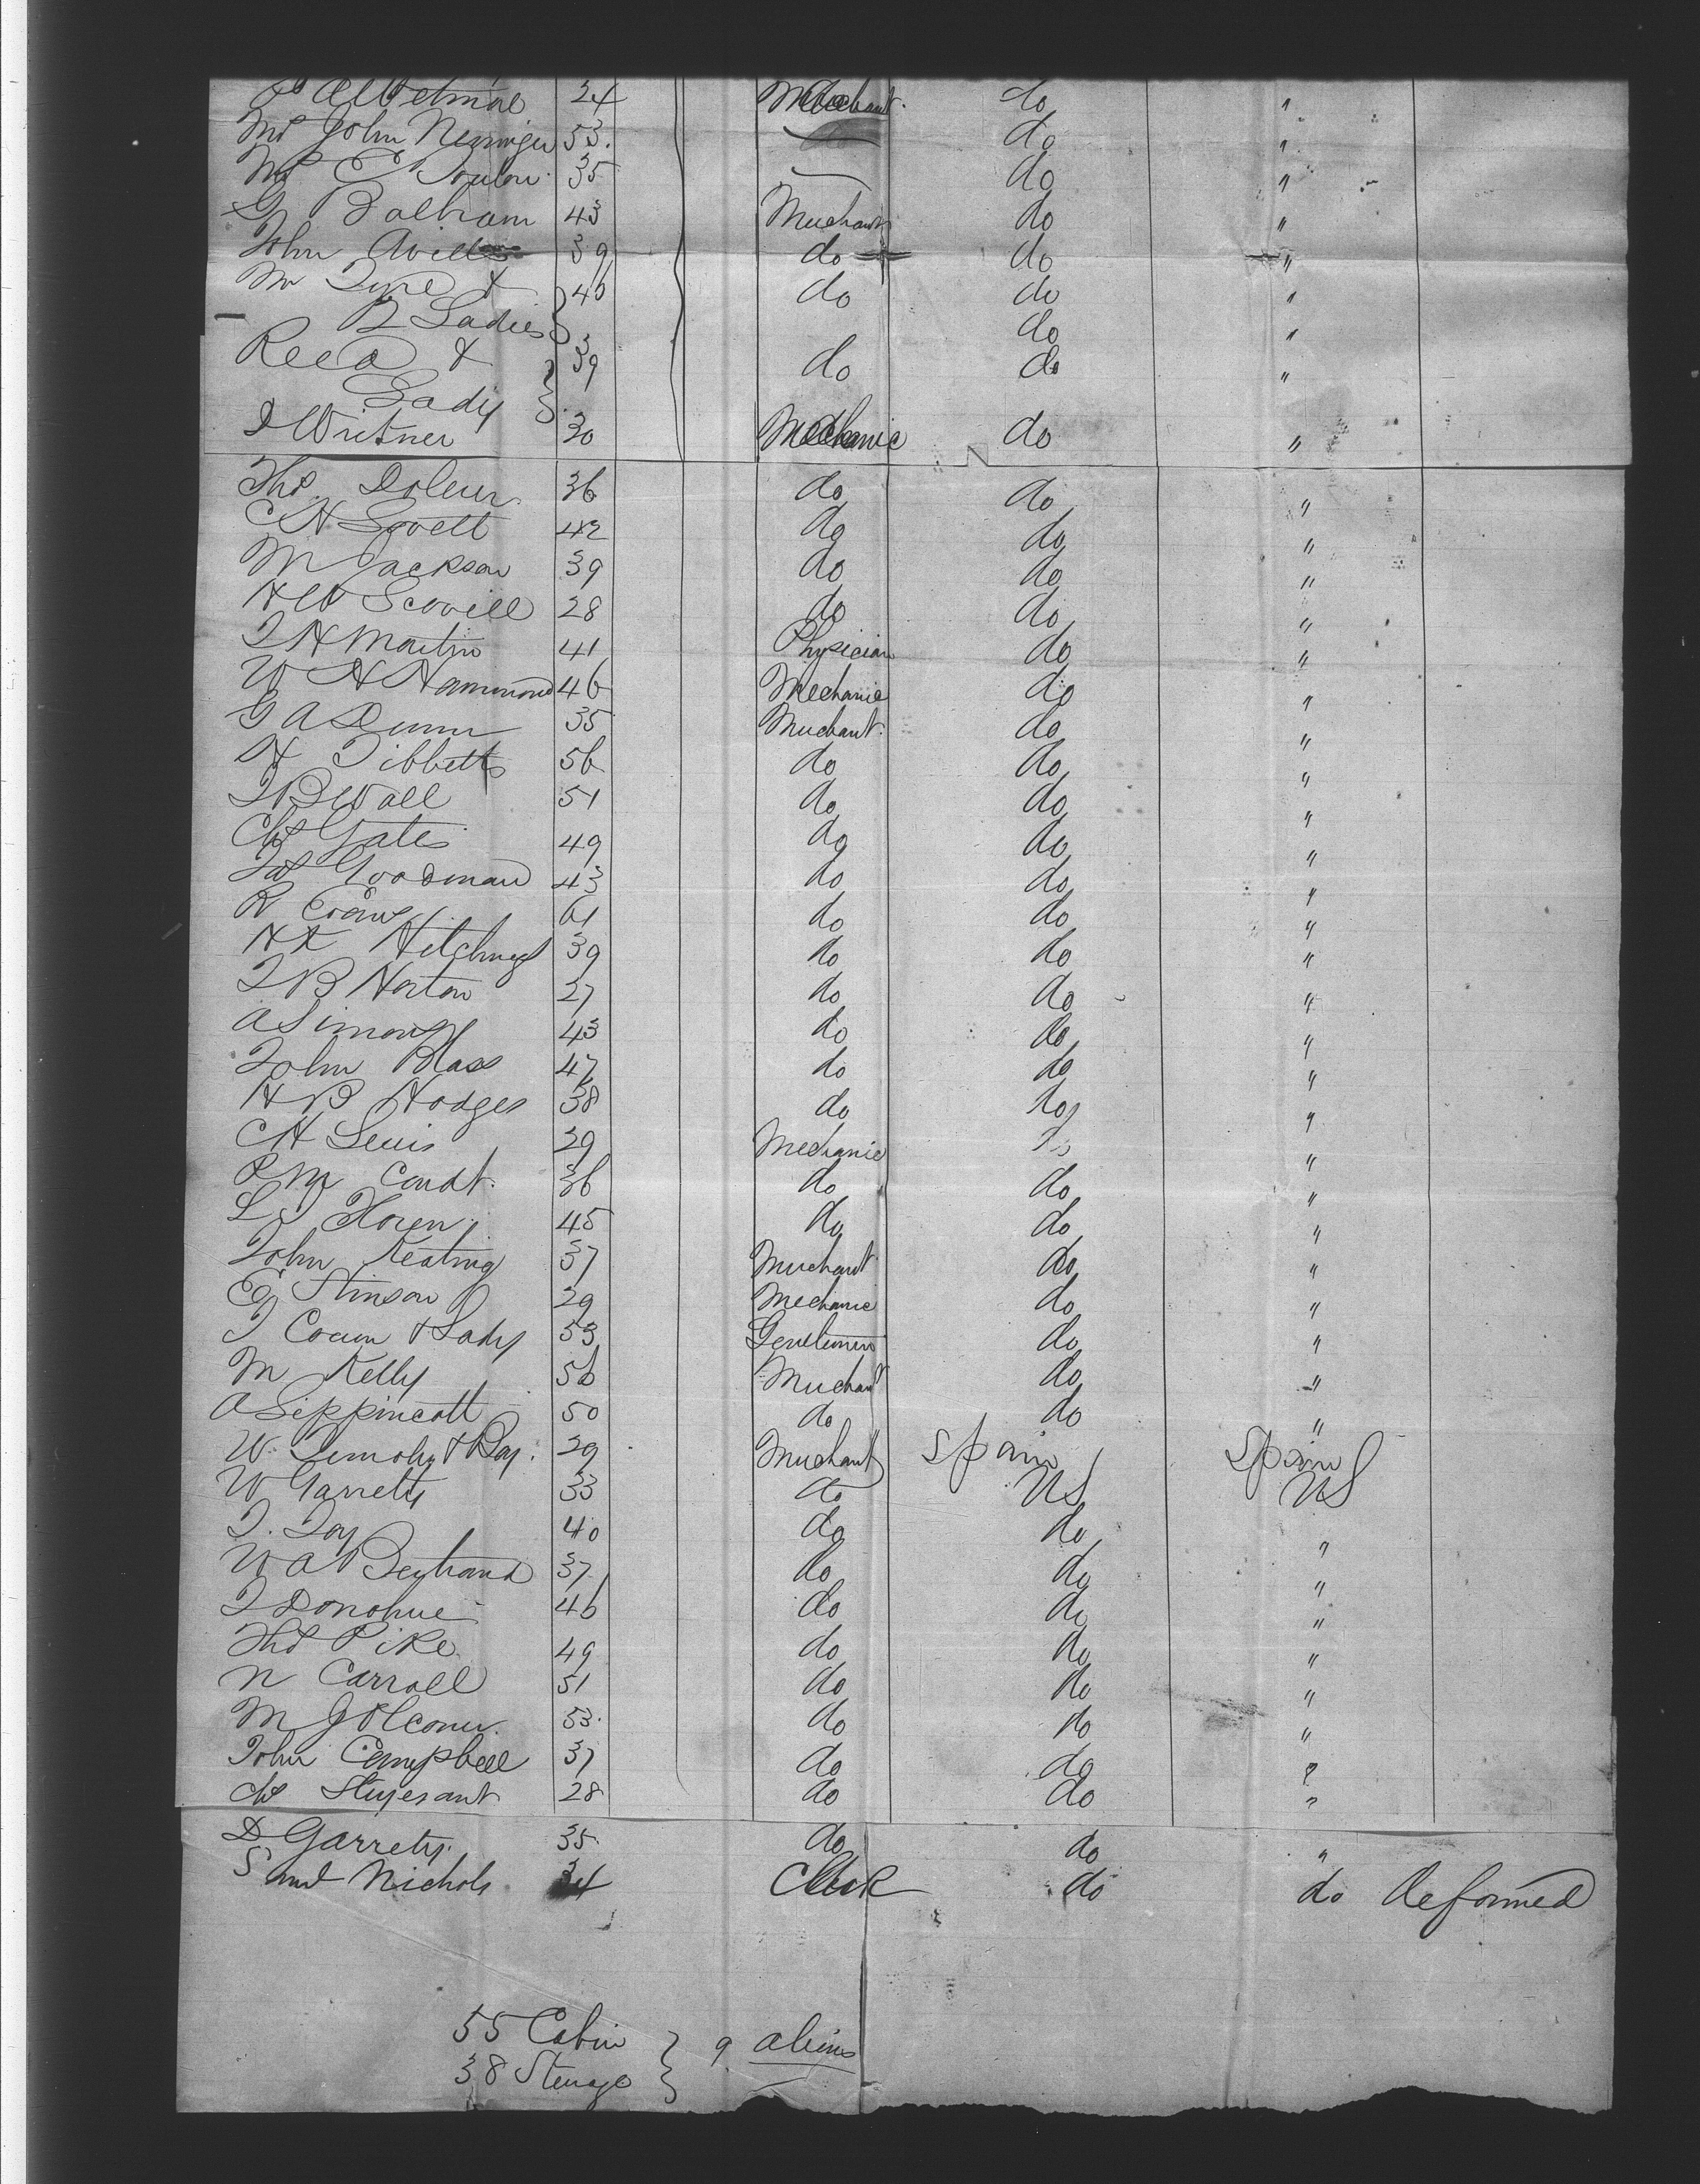 24 Merchant do "
Mrs John Nessinger 53. do "
Mrs E Toulon 35 do "
G Balham 43 Merchant do "
John Avills 39 do do "
Mr Tyre & 40 do do "
2 Ladies do "
Reed & 39 do do "
Lady
D Writner 30 Mechanic do "
Ths. Doleur 36 do do "
C H Lovell 42 do do "
M Jackson 39 do do "
H W Scovill 28 do do "
J H Martin 41 Physician do "
W H Hammond 46 Mechanic do "
G A Dunn 35 Merchant do "
H Tibbetts 56 do do "
J B Wall 51 do do "
Chs Gates 49 do do "
Jas Goodman 43 do do "
R Evans 61 do do "
H K Hitchings 39 do do "
J B Norton 27 do do "
A Simons 43 do do "
John Blass 47 do do "
H B Hodges 38 do do "
C H Lewis 29 Mechanic do "
P M Condt. 36 do do "
L J Horen 45 do do "
John Keating 37 Merchant do "
E Stinson 29 Mechanic do "
J Cocum & Lady 53 Gentlemen do "
M Kelly 56 Merchant do "
A Lippincott 50 do do "
W. & Boy. 29 Merchant Spain Spain
W Garrety 33 do US US
J. Joy 40 do do "
W A Bertrand 37 do do "
J Donohue 46 do do "
Ths Pike 49 do do "
N Carroll 51 do do "
M J OConner. 53. do do "
John Campbell 37 do do "
Chs Stuyesant 28 do do "
D Garrety. 35 do do "
Saml Nichols 34 Clerk do do deformed
55 Cabin
9 aliens
38 Sterage